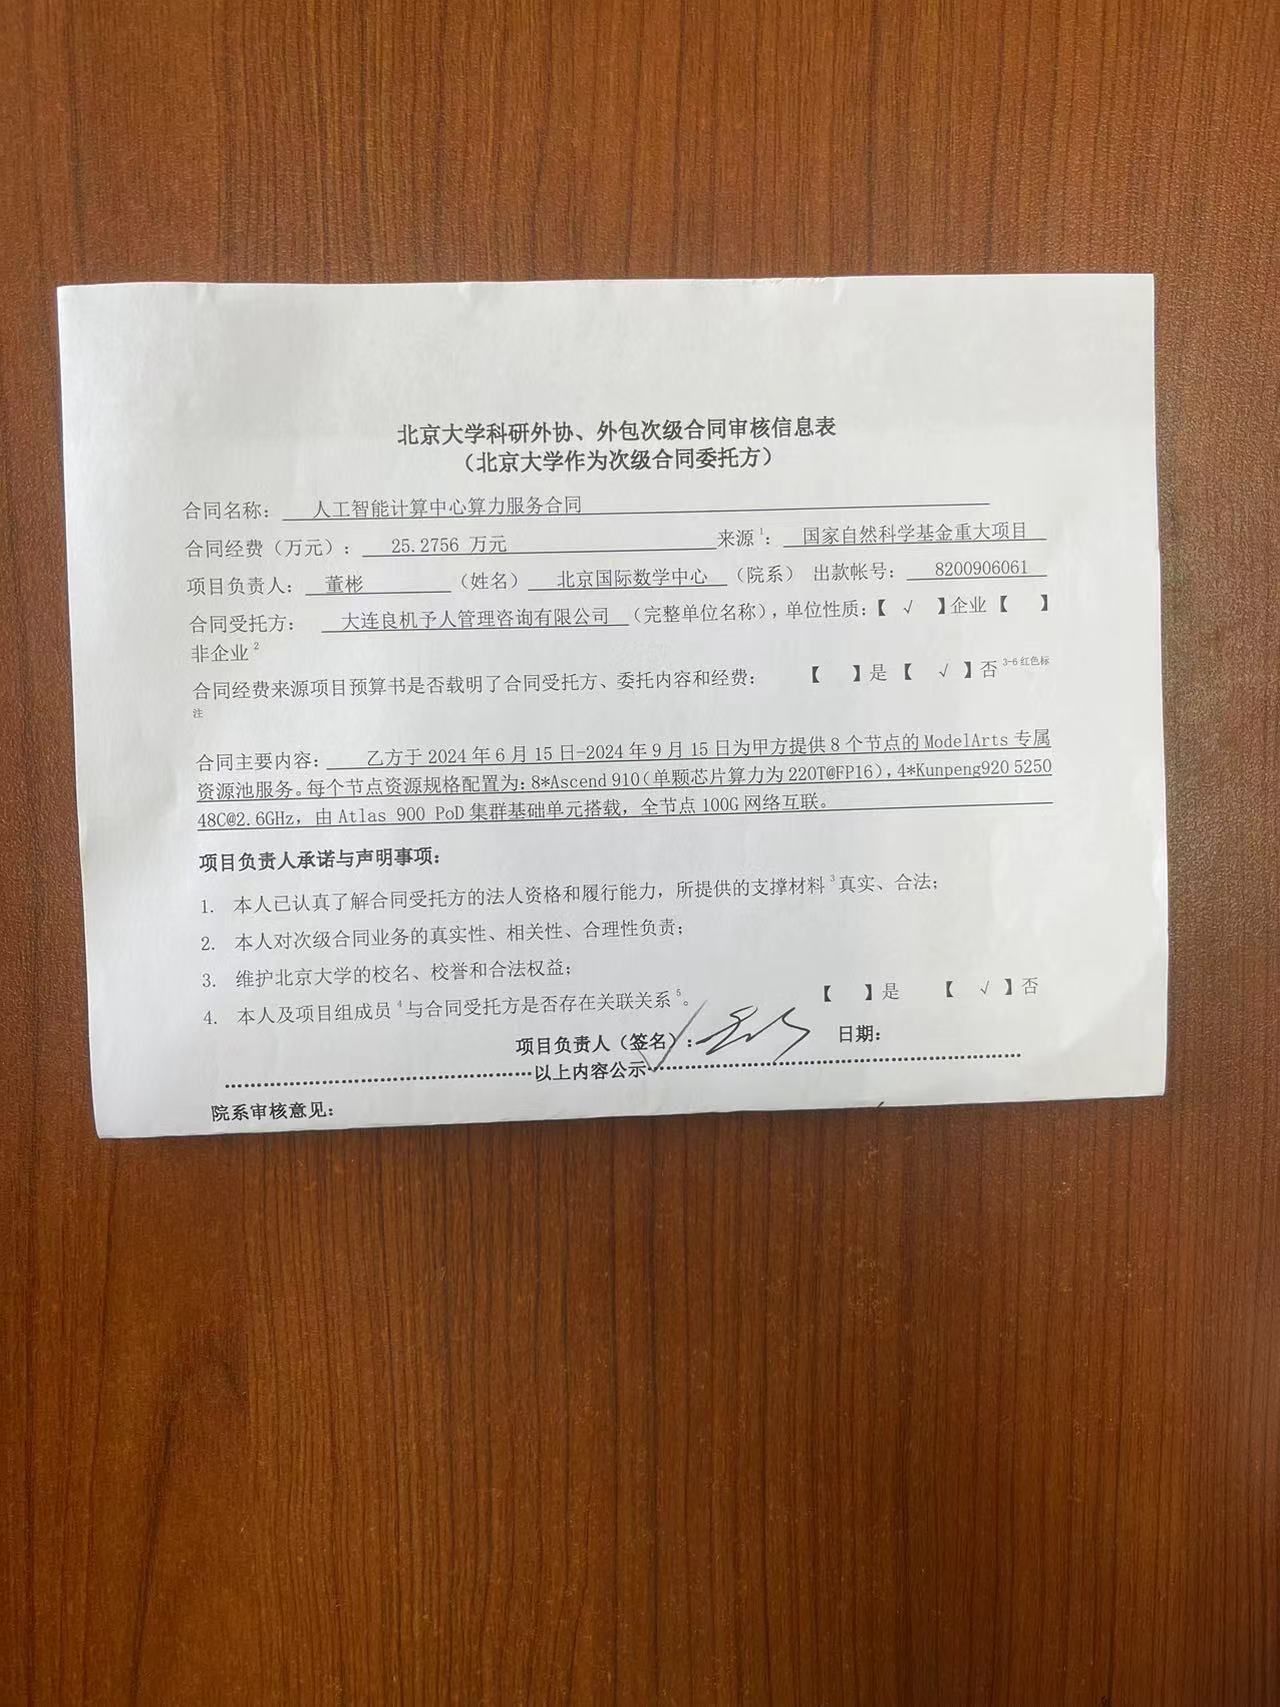 北京大学科研外协、外包次级合同审核信息表
（北京大学作为次级合同委托方）
合同名称： 人工智能计算中心算力服务合同
合同经费（万元）： 25.2756 万元 来源1： 国家自然科学基金重大项目
项目负责人： 董彬 （姓名） 北京国际数学中心 （院系） 出款帐号： 8200906061
合同受托方： 大连良机予人管理咨询有限公司 （完整单位名称），单位性质：【 √ 】企业【 】
非企业2
合同经费来源项目预算书是否载明了合同受托方、委托内容和经费： 【 】是【 √ 】否3-6红色标
注
合同主要内容： 乙方于 2024 年 6 月 15 日-2024 年 9 月 15 日为甲方提供 8 个节点的 ModelArts 专属
资源池服务。每个节点资源规格配置为：8*Ascend 910（单颗芯片算力为 220T@FP16），4*Kunpeng920 5250
48C@2.6GHz，由 Atlas 900 PoD 集群基础单元搭载，全节点 100G 网络互联。
项目负责人承诺与声明事项：
1. 本人已认真了解合同受托方的法人资格和履行能力，所提供的支撑材料3真实、合法；
2. 本人对次级合同业务的真实性、相关性、合理性负责；
3. 维护北京大学的校名、校誉和合法权益；
4. 本人及项目组成员4与合同受托方是否存在关联关系5。 【 】是 【 √ 】否
项目负责人（签名）： 日期：
以上内容公示
院系审核意见：